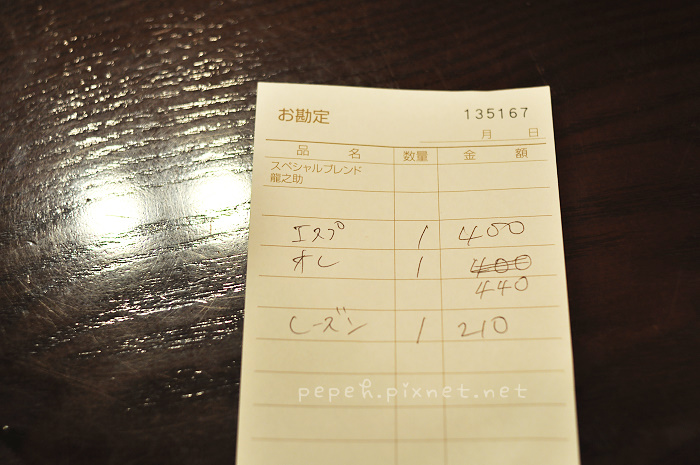 お勘定 135167
月 日
品 名 数量 金 額
スペシャルブレンド
龍之助
エスプ 1 400
オレ 1 400
440
レーズン 1 210
pepeh.pixnet.net